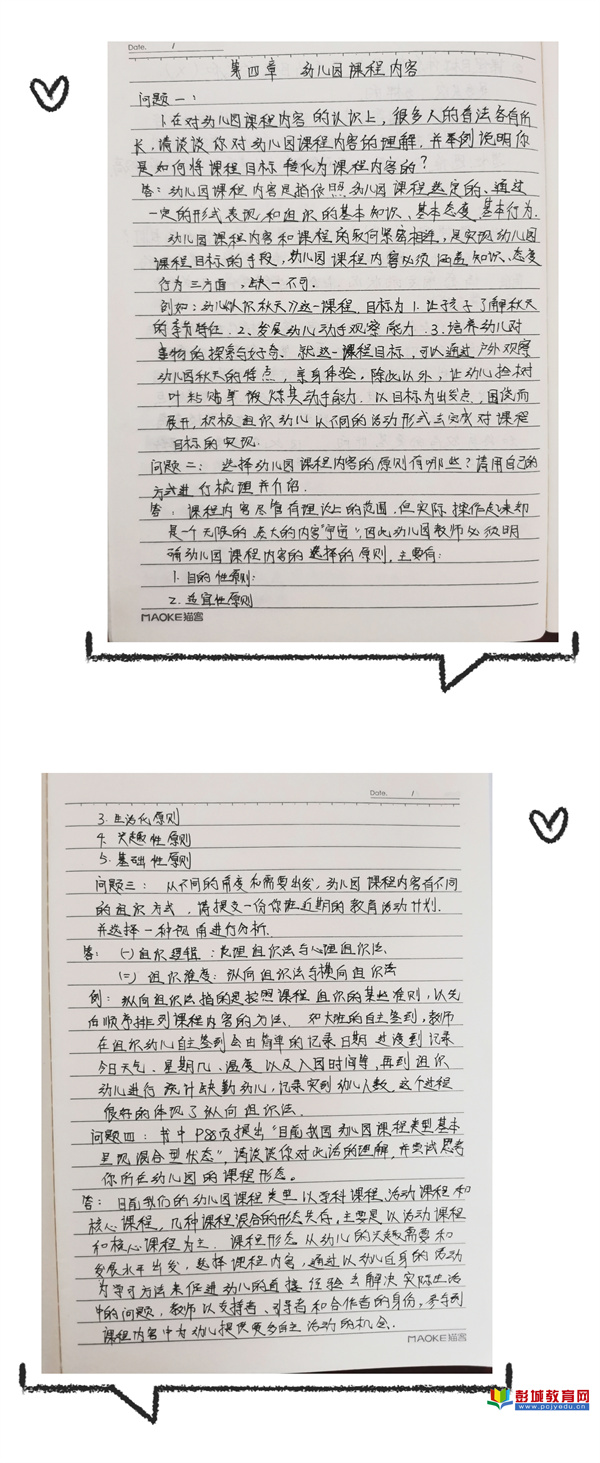 Date. /
第四章 幼儿园课程内容
问题一：
1.在对幼儿园课程内容的认识上，很多人的看法各有所
长，请谈谈你对幼儿园课程内容的理解，并举例说明你
是如何将课程目标转化为课程内容的？
答：幼儿园课程内容是指依照幼儿园课程选定的、通过
一定的形式表现和组织的基本知识、基本态度、基本行为.
幼儿园课程内容和课程的取向紧密相连，是实现幼儿园
课程目标的手段，幼儿园课程内容必须涵盖知识、态度
行为三方面，缺一不可.
例如：幼儿《认识秋天》这一课程，目标为1.让孩子了解秋天
的季节特征.2.发展幼儿动手观察能力.3.培养幼儿对
事物的探索与好奇、就这一课程目标，可以通过户外观察
幼儿园秋天的特点，亲身体验，除此以外，让幼儿捡树
叶粘贴等锻炼其动手能力.以目标为出发点，围绕而
展开，积极组织幼儿从不同的活动形式去完成对课程
目标的实现.
问题二：选择幼儿园课程内容的原则有哪些？请用自己的
方式进行梳理并介绍.
答：课程内容尽管有理论上的范围，但实际操作起来却
是一个无限的、庞大的内容"宇宙"，因此幼儿园教师必须明
确幼儿园课程内容的选择的原则，主要有：
1.目的性原则：
2.适宜性原则
MAOKE猫客
Date. /
3.生活化原则
4.兴趣性原则
5.基础性原则
问题三：从不同的角度和需要出发，幼儿园课程内容有不同
的组织方式，请提交一份你班近期的教育活动计划.
并选择一种视角进行分析.
答：(一)组织逻辑：论理组织法与心理组织法.
(二)组织维度：纵向组织法与横向组织法
例：纵向组织法指的是按照课程组织的某些准则，以先
后顺序排列课程内容的方法、如大班的自主签到，教师
在组织幼儿自主签到会由简单的记录日期过渡到记录
今日天气、星期几、温度以及入园时间等，再到组织
幼儿进行统计缺勤幼儿，记录实到幼儿人数，这个过程
很好的体现了纵向组织法.
问题四：书中P88页提出"目前我国幼儿园课程类型基本
呈现混合型状态"，请谈谈你对此话的理解，并尝试思考
你所在幼儿园的课程形态。
答：目前我们的幼儿园课程类型以学科课程、活动课程和
核心课程，几种课程混合的形态共存，主要是以活动课程
和核心课程为主.课程形态从幼儿的兴趣需要和
发展水平出发，选择课程内容，通过以幼儿自身的活动
为学习方法来促进幼儿的直接经验去解决实际生活
中的问题，教师以支持者、引导者和合作者的身份，参与到
课程内容中为幼儿提供更多自主活动的机会.
MAOKE猫客
彭城教育网
www.pcjyedu.cn